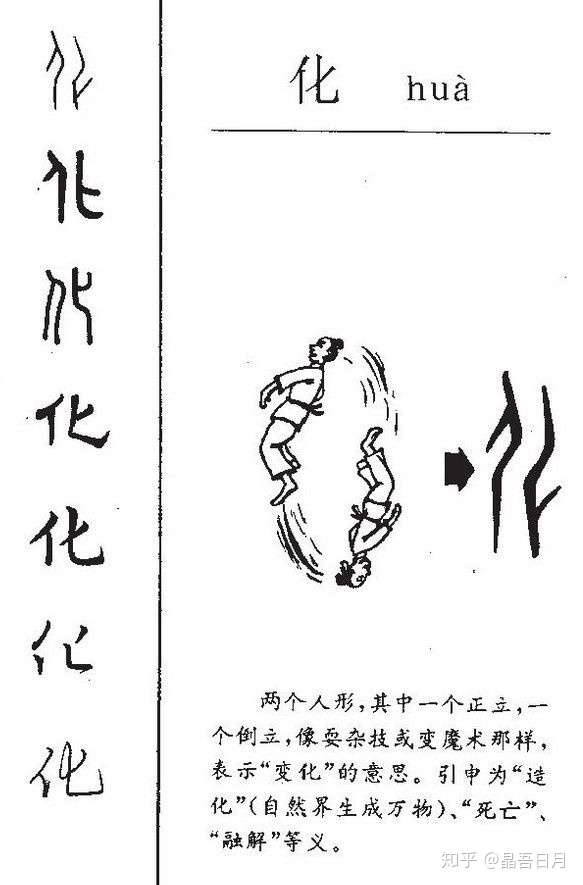 化 huà
两个人形，其中一个正立，一
个倒立，像耍杂技或变魔术那样，
表示“变化”的意思。引申为“造
化”（自然界生成万物）、“死亡”、
“融解”等义。
化
化
化
化
化
化
化
化
知乎 @晶吾日月